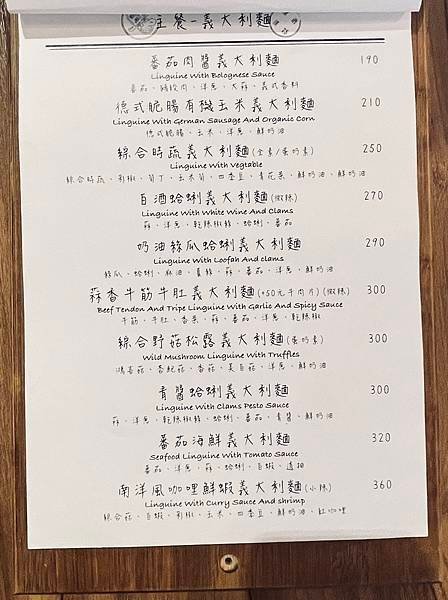 主餐-義大利麵
番茄肉醬義大利麵 190
Linguine With Bolognese Sauce
番茄、豬絞肉、洋蔥、大蒜、義式香料
德式脆腸有機玉米義大利麵 210
Linguine With German Sausage And Organic Corn
德式脆腸、玉米、洋蔥、鮮奶油
綜合時蔬義大利麵(全素/蛋奶素) 250
Linguine With Vegtable
綜合時蔬、彩椒、筍丁、玉米筍、四季豆、青花菜、鮮奶油、鮮奶油
白酒蛤蜊義大利麵(微辣) 270
Linguine With White Wine And Clams
蒜、洋蔥、乾辣椒絲、蛤蜊、番茄
奶油絲瓜蛤蜊義大利麵 290
Linguine With Loofah And clams
絲瓜、蛤蜊、麻油、薑絲、蒜、番茄、洋蔥、鮮奶油
蒜香牛筋牛肚義大利麵(+50元牛肉片)(微辣) 300
Beef Tendon And Tripe Linguine With Garlic And Spicy Sauce
牛筋、牛肚、香菜、蒜、番茄、洋蔥、乾辣椒
綜合野菇松露義大利麵(蛋奶素) 300
Wild Mushroom Linguine With Truffles
鴻喜菇、杏鮑菇、香菇、美白菇、洋蔥、鮮奶油
青醬蛤蜊義大利麵 300
Linguine With Clams Pesto Sauce
蒜、洋蔥、乾辣椒絲、蛤蜊、番茄、青醬、鮮奶油
番茄海鮮義大利麵 320
Seafood Linguine With Tomato Sauce
番茄、洋蔥、蒜、蛤蜊、白蝦、透抽
南洋風咖哩鮮蝦義大利麵(小辣) 360
Linguine With Curry Sauce And shrimp
綜合菇、白蝦、彩椒、玉米、四季豆、鮮奶油、紅咖哩